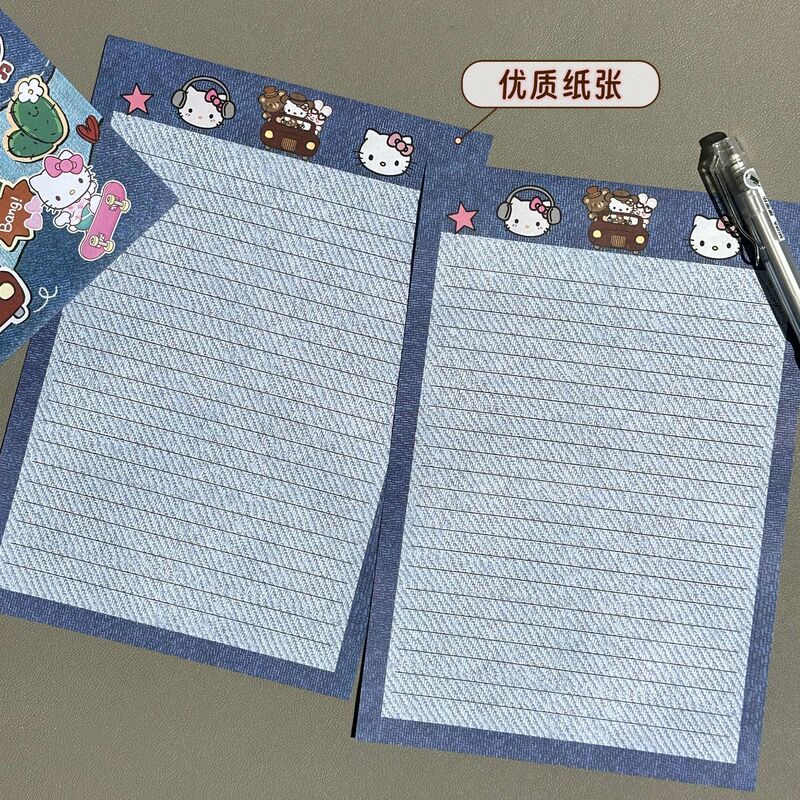 优质纸张
Bang!